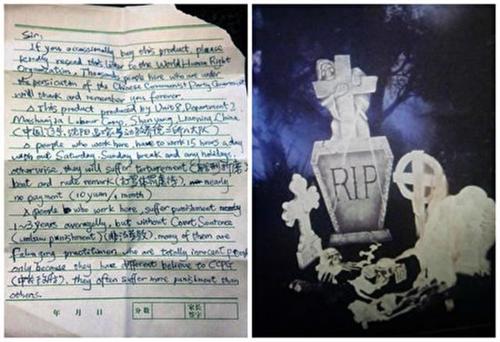 Sir:
If you occassionally buy this product, please
kindly resend this letter to the World Human Right
Organization. Thousands people here who are under
the persicution of the Chinese Communist Party Government
will thank and remember you forever.
This product produced by Unit 8, Department 2,
Mashanjia Labour Camp, Shen yang, Liaoning, China
(中国,辽宁,沈阳,
people who work here, have to work 15 hours a day
with out Saturday, Sunday break and any holidays,
otherwise, they will suffer torturement
beat and rude remark nearly
no payment (10 yuan/1 month)
people who work here, suffer punishment nearly
1~3 years averagelly, but without Court Sentence
(unlaw punishment) many of them are
Falun gong practitioner, who are totally innocent people
only because they have different believe to CCPG
they often suffer more punishment than
others.
年 月 日 分数 家长签字
RIP